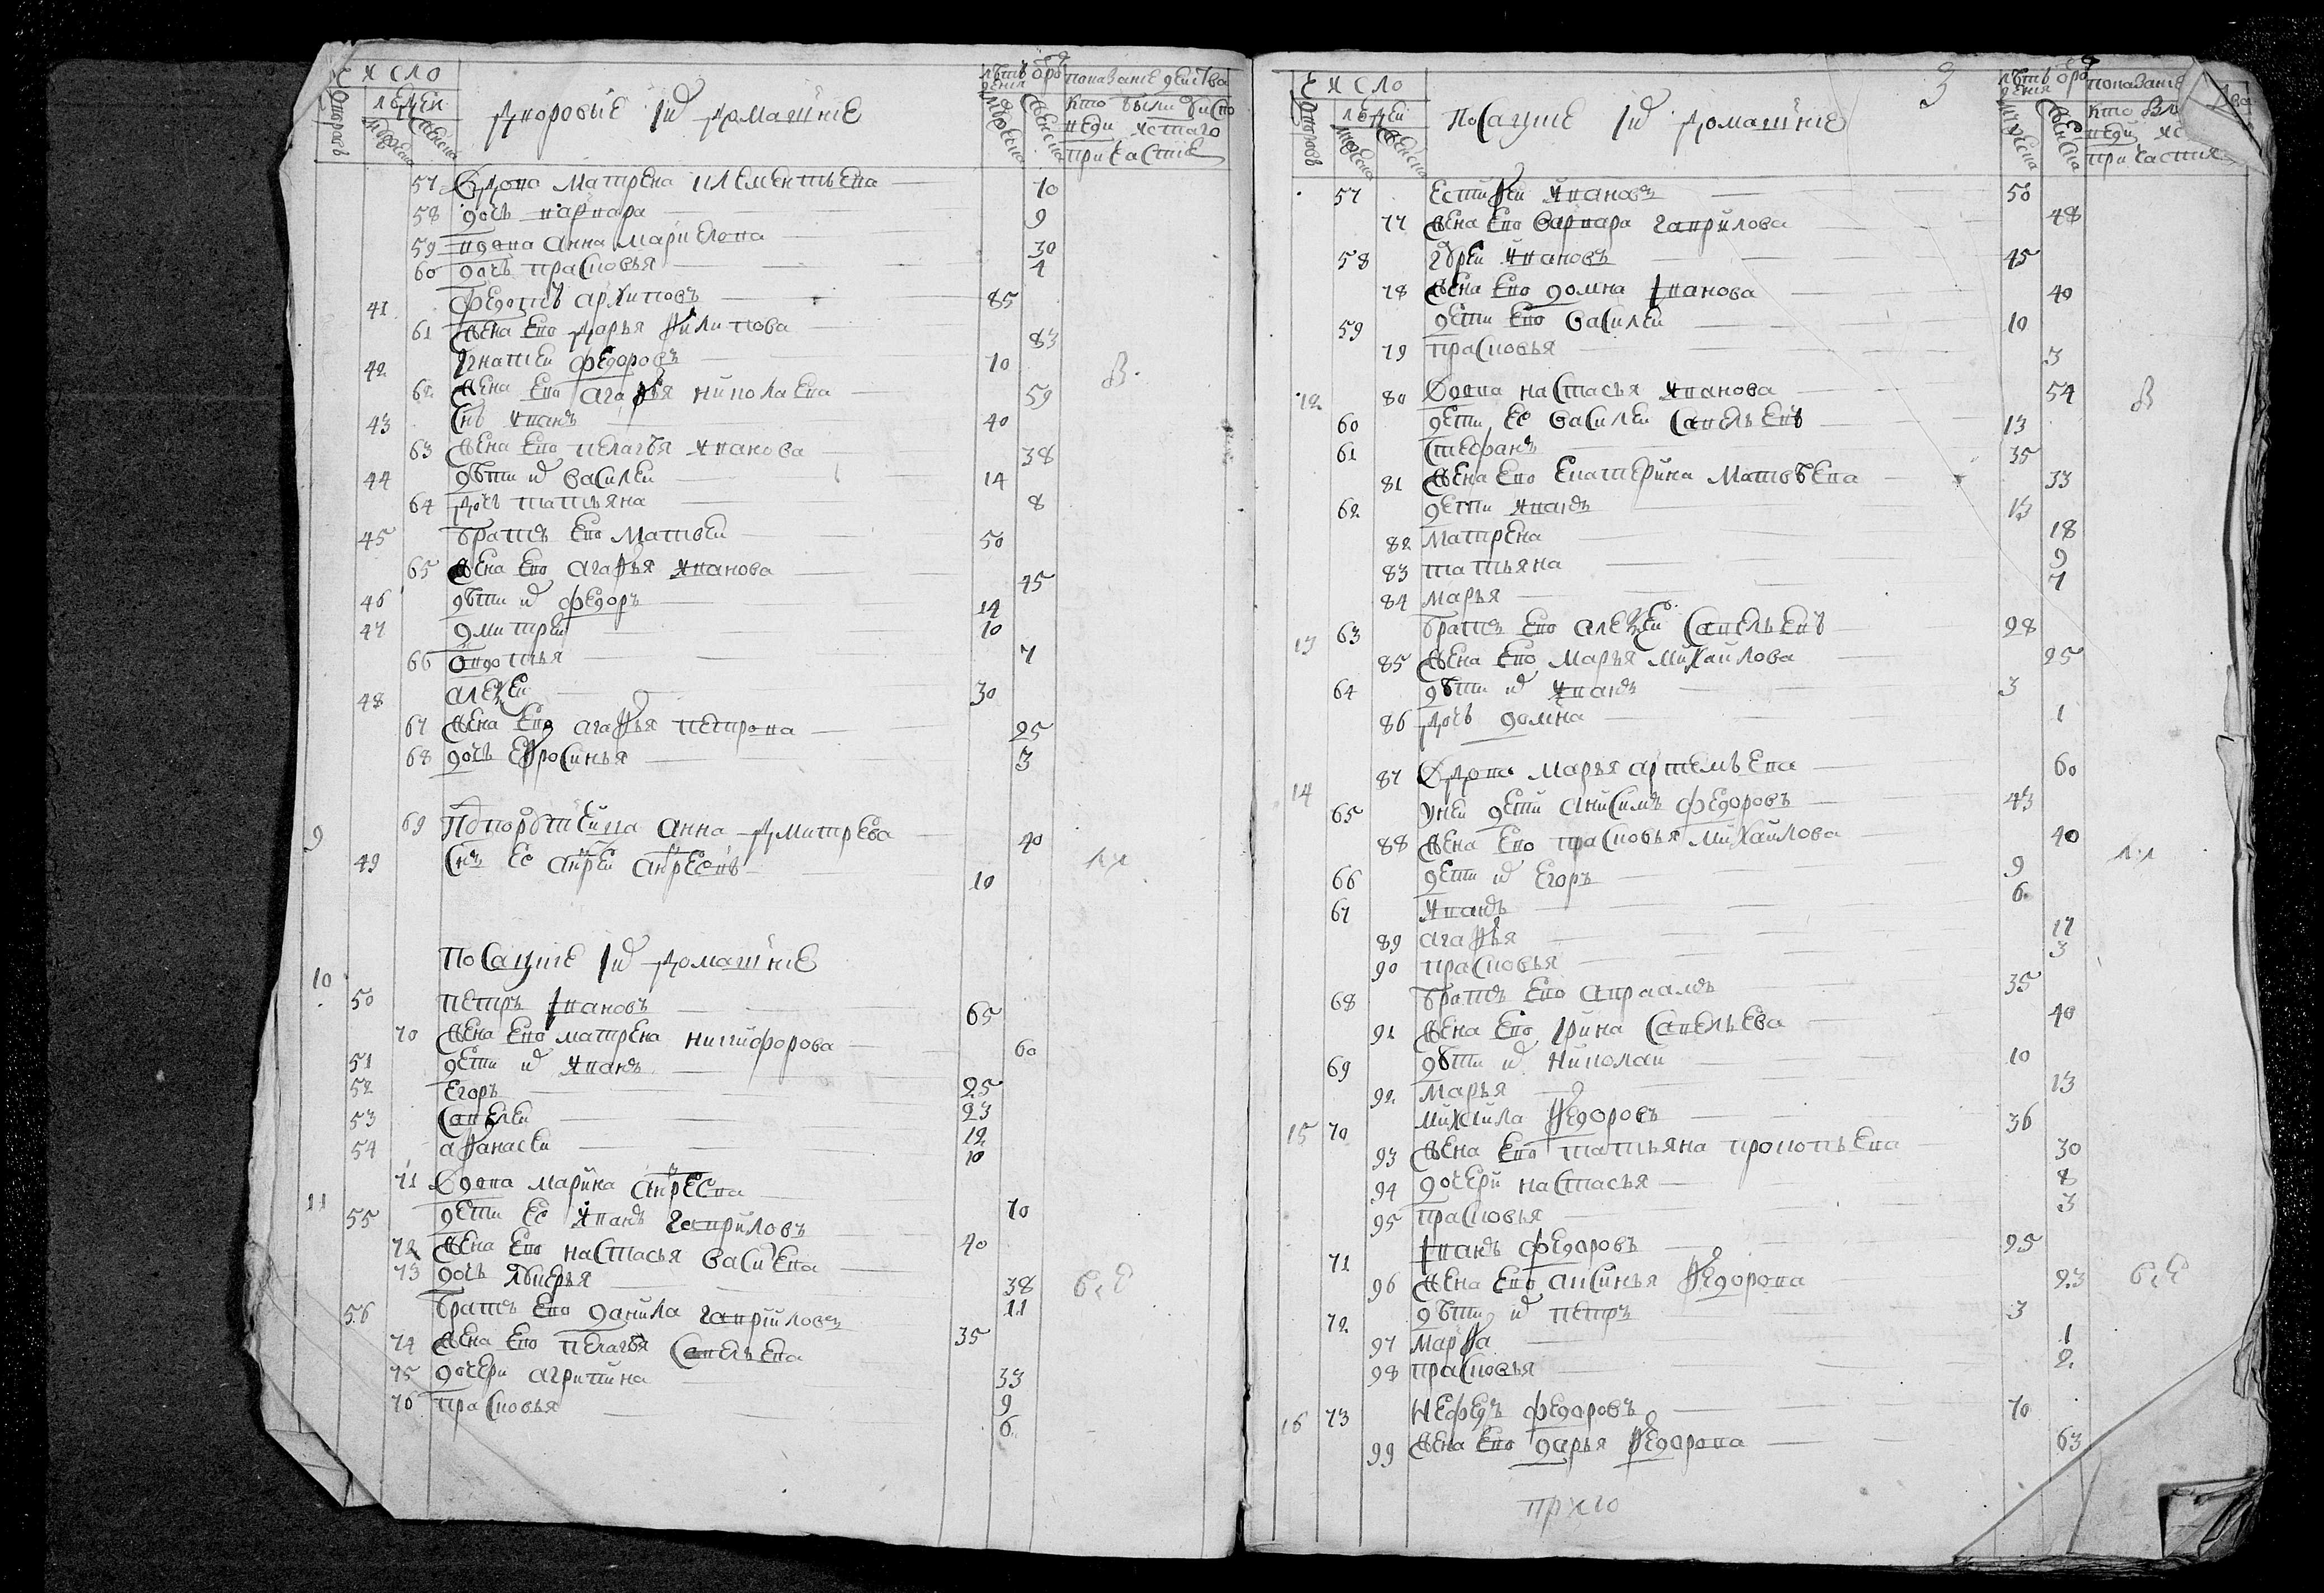 Число
людей
дворовые Ид домашние
лѣтъ от ро
дения
показание действа
кто были у испо
веди и стаго
причастие
57 вдова матрена клементьева 70
58 дочь варвара 9
59 вдова анна маркелова 30
60 дочь прасковья 7
41 федотъ архиповъ 85
61 жена ево дарья филипова 83
42 Игнатей федоровъ 70
62 жена ево агафья николаева 59
В.
43 снъ иванъ 40
63 жена ево пелагѣя иванова 38
44 дѣти их василеи 14
64 дочь татьяна 8
45 братъ ево матвеи 50
65 жена ево агафья иванова 45
46 дѣти их федоръ 14
47 дмитреи 10
66 овдотья 7
48 алеѯеи 30
67 жена ево агафья петрова 25
68 дочь ефросинья 3
9 69 анна дмитрева 40
49 снъ ее анреи анреевъ 10
посацкие Ид домашние
10 50 петръ ивановъ 65
70 жена ево матрена никифорова 60
51 дети их иванъ
52 егоръ 25
53 савелеи 23
54 афанасеи 12
10
11 71 вдова марина анреева 70
55 дети ее иванъ гавриловъ 40
72 жена ево настасья васил ева 38
73 дочь 11
56 братъ ево данила гавриловъ 35
74 жена ево пелагѣя савельева 33
75 дочери агрипина 9
76 прасковья 6
3
Число
людей
посацкие Ид домашние
лѣтъ от ро
дения
показание
кто были
веди и с
причастия
57 естифеи ивановъ 50
77 жена ево варвара гаврилова 48
58 ивановъ 45
78 жена ево домна иванова 40
59 дети ево василеи 10
79 прасковья 3
12 80 вдова настасья иванова 54
В
60 дети ее василеи савельевъ 13
61 стефанъ 35
81 жена ево екатерина матвѣева 33
62 дети иванъ 13
82 матрена 18
83 татьяна 9
84 марья 7
13 63 братъ ево алеѯеи савельевъ 28
85 жена ево марья михаилова 25
64 дѣти их иванъ 3
86 дочь домна 1
14 87 вдова марья артемьева 60
65 у неи дети анисимъ федоровъ 43
88 жена ево прасковья михаилова 40
66 дети их егоръ 9
67 иванъ 6
89 агафья 17
90 прасковья 3
68 братъ ево авраамъ 35
91 жена ево ирина савельева 40
69 дѣти их николаи 10
92 марья 13
15 70 михаила федоровъ 36
93 жена ево татьяна прокопьева 30
94 дочери настасья 8
95 прасковья 3
71 иванъ федоровъ 25
96 жена ево аксинья федорова 23
72 дѣти их петръ 3
97 марфа 1
98 прасковья 2
16 73 нефедъ федоровъ 70
99 жена ево дарья федорова 63